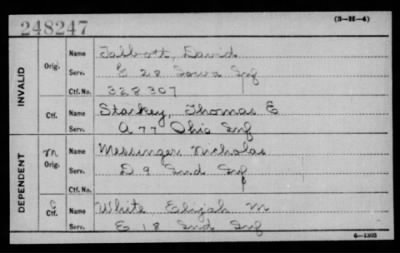 248247
(3-H-4)
INVALID
Orig.
Name Talbott, David
Serv. E 28 Iowa Inf
Ctf. No. 328307
Ctf.
Name Starkey, Thomas E
Serv. A 77 Ohio Inf
DEPENDENT
M
Orig.
Name Messinger Nicholas
Serv. D 9 Ind Inf
Ctf. No.
C
Ctf.
Name White Elijah M
Serv. E 18 Ind Inf